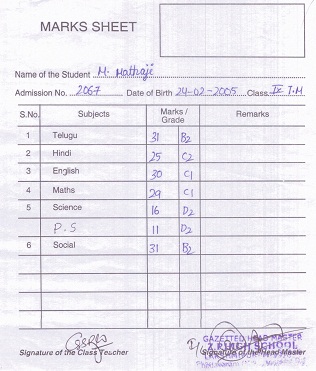 MARKS SHEET
Name of the Student M. Mattaji
Admission No. 2067 Date of Birth 24-02-2005 Class IX T.M
S.No. Subjects Marks / Grade Remarks
1 Telugu 31 B2
2 Hindi 25 C2
3 English 30 C1
4 Maths 29 C1
5 Science 16 D2
P.S 11 D2
6 Social 31 B2
GAZETTED HEAD MASTER
Z.P. HIGH SCHOOL
Signature of the Class Teacher Signature of the Head Master